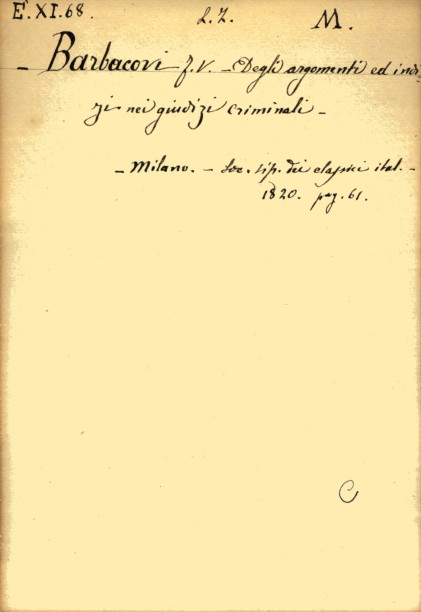 E.XI.68 L.Z. M.
- Barbacovi F.V. - Degli argomenti ed indi
zi nei giudizi criminali -
- Milano. - Soc. tip. dei classici ital. -
1820. pag. 61.
C